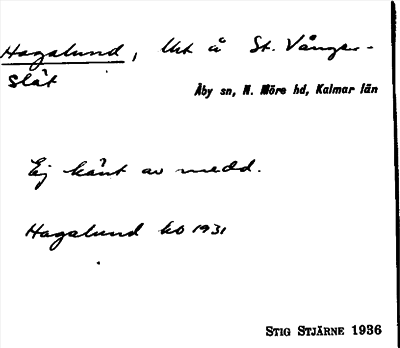 Hagalund, lht å St. Vånger-
slät
Åby sn, N. Möre hd, Kalmar län
Ej känt av medd.
Hagalund kb 1931
STIG STJÄRNE 1936